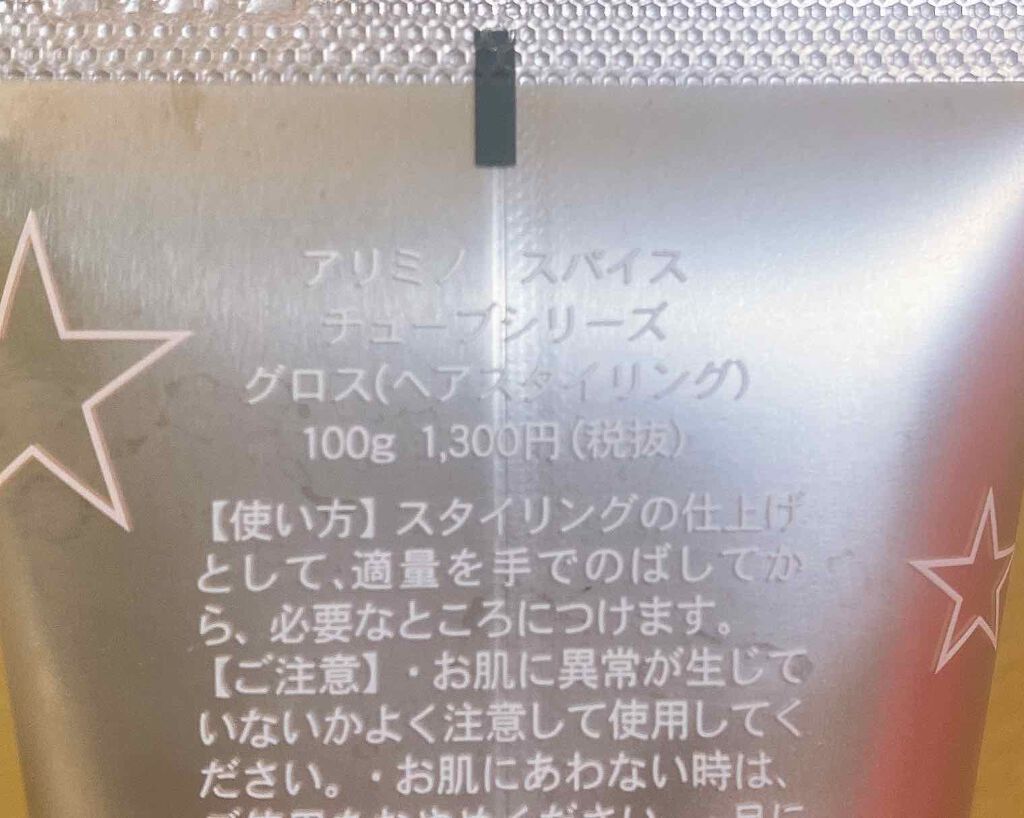 アリミノ スパイス
チューブシリーズ
グロス(ヘアスタイリング)
100g 1,300円(税抜)
【使い方】スタイリングの仕上げ
として、適量を手でのばしてか
ら、必要なところにつけます。
【ご注意】・お肌に異常が生じて
いないかよく注意して使用してく
ださい。・お肌にあわない時は、